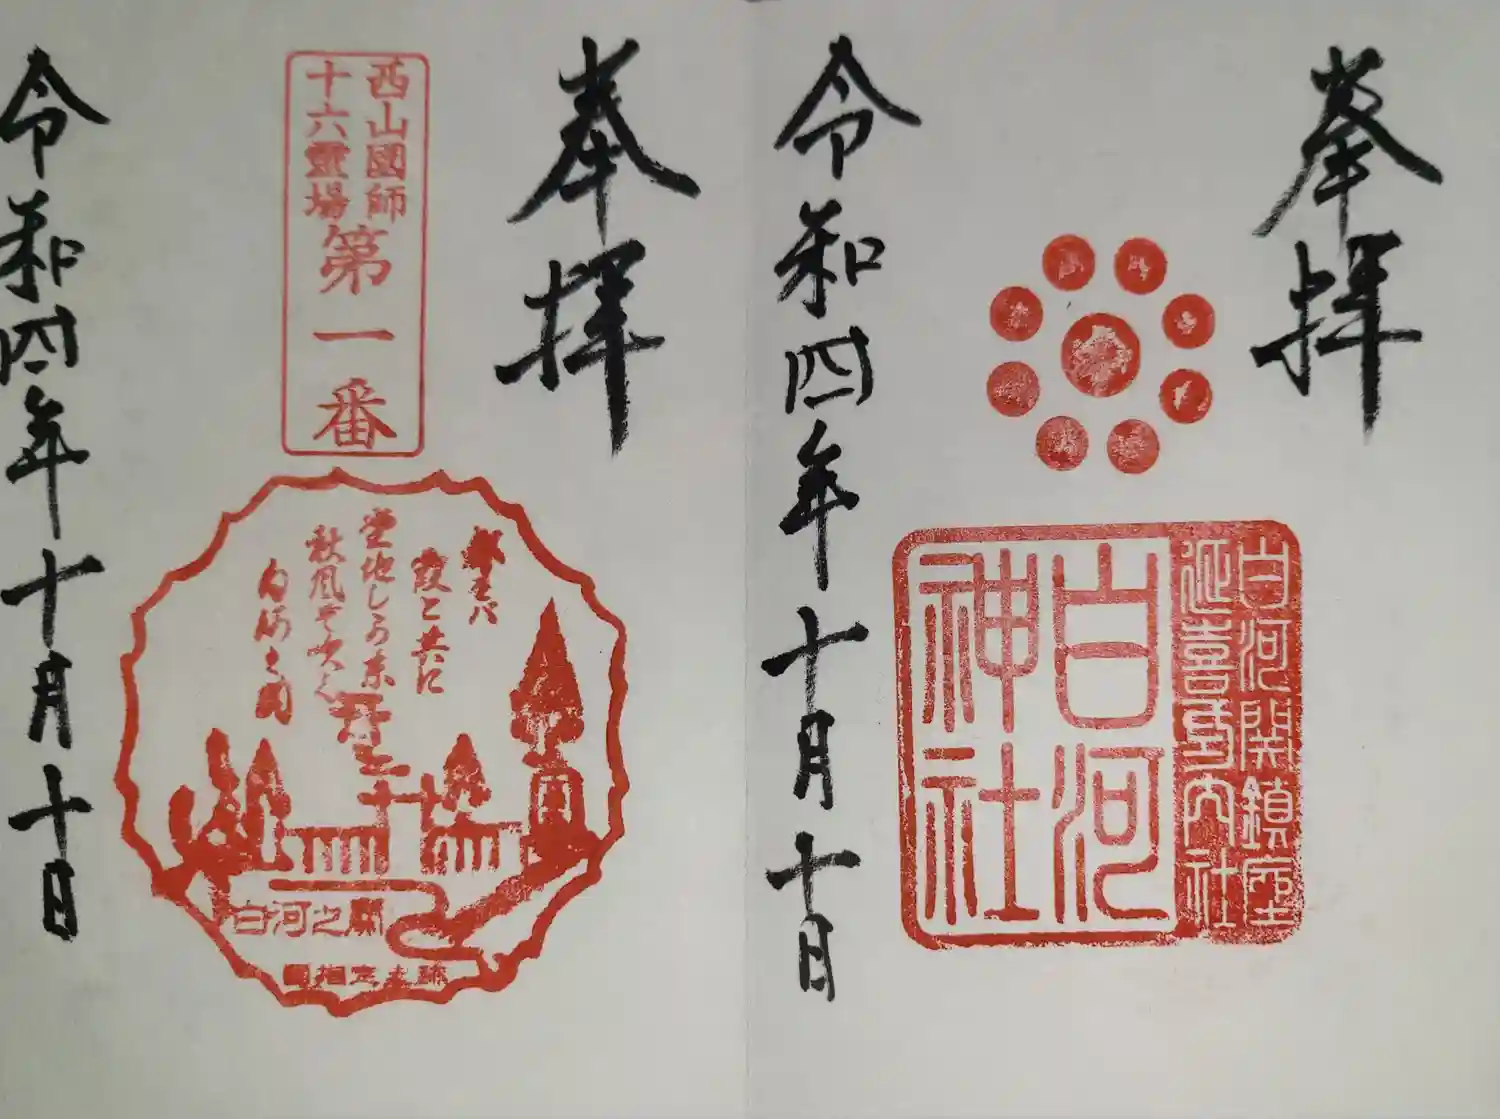 奉拝
白河関鎮座
延喜式内社
白河
神社
令和四年十月十日
奉拝
西山國師
十六霊場
第一番
都をば
霞と共に
立しかど
秋風ぞ吹く
白河之関
白河之關
令和四年十月十日